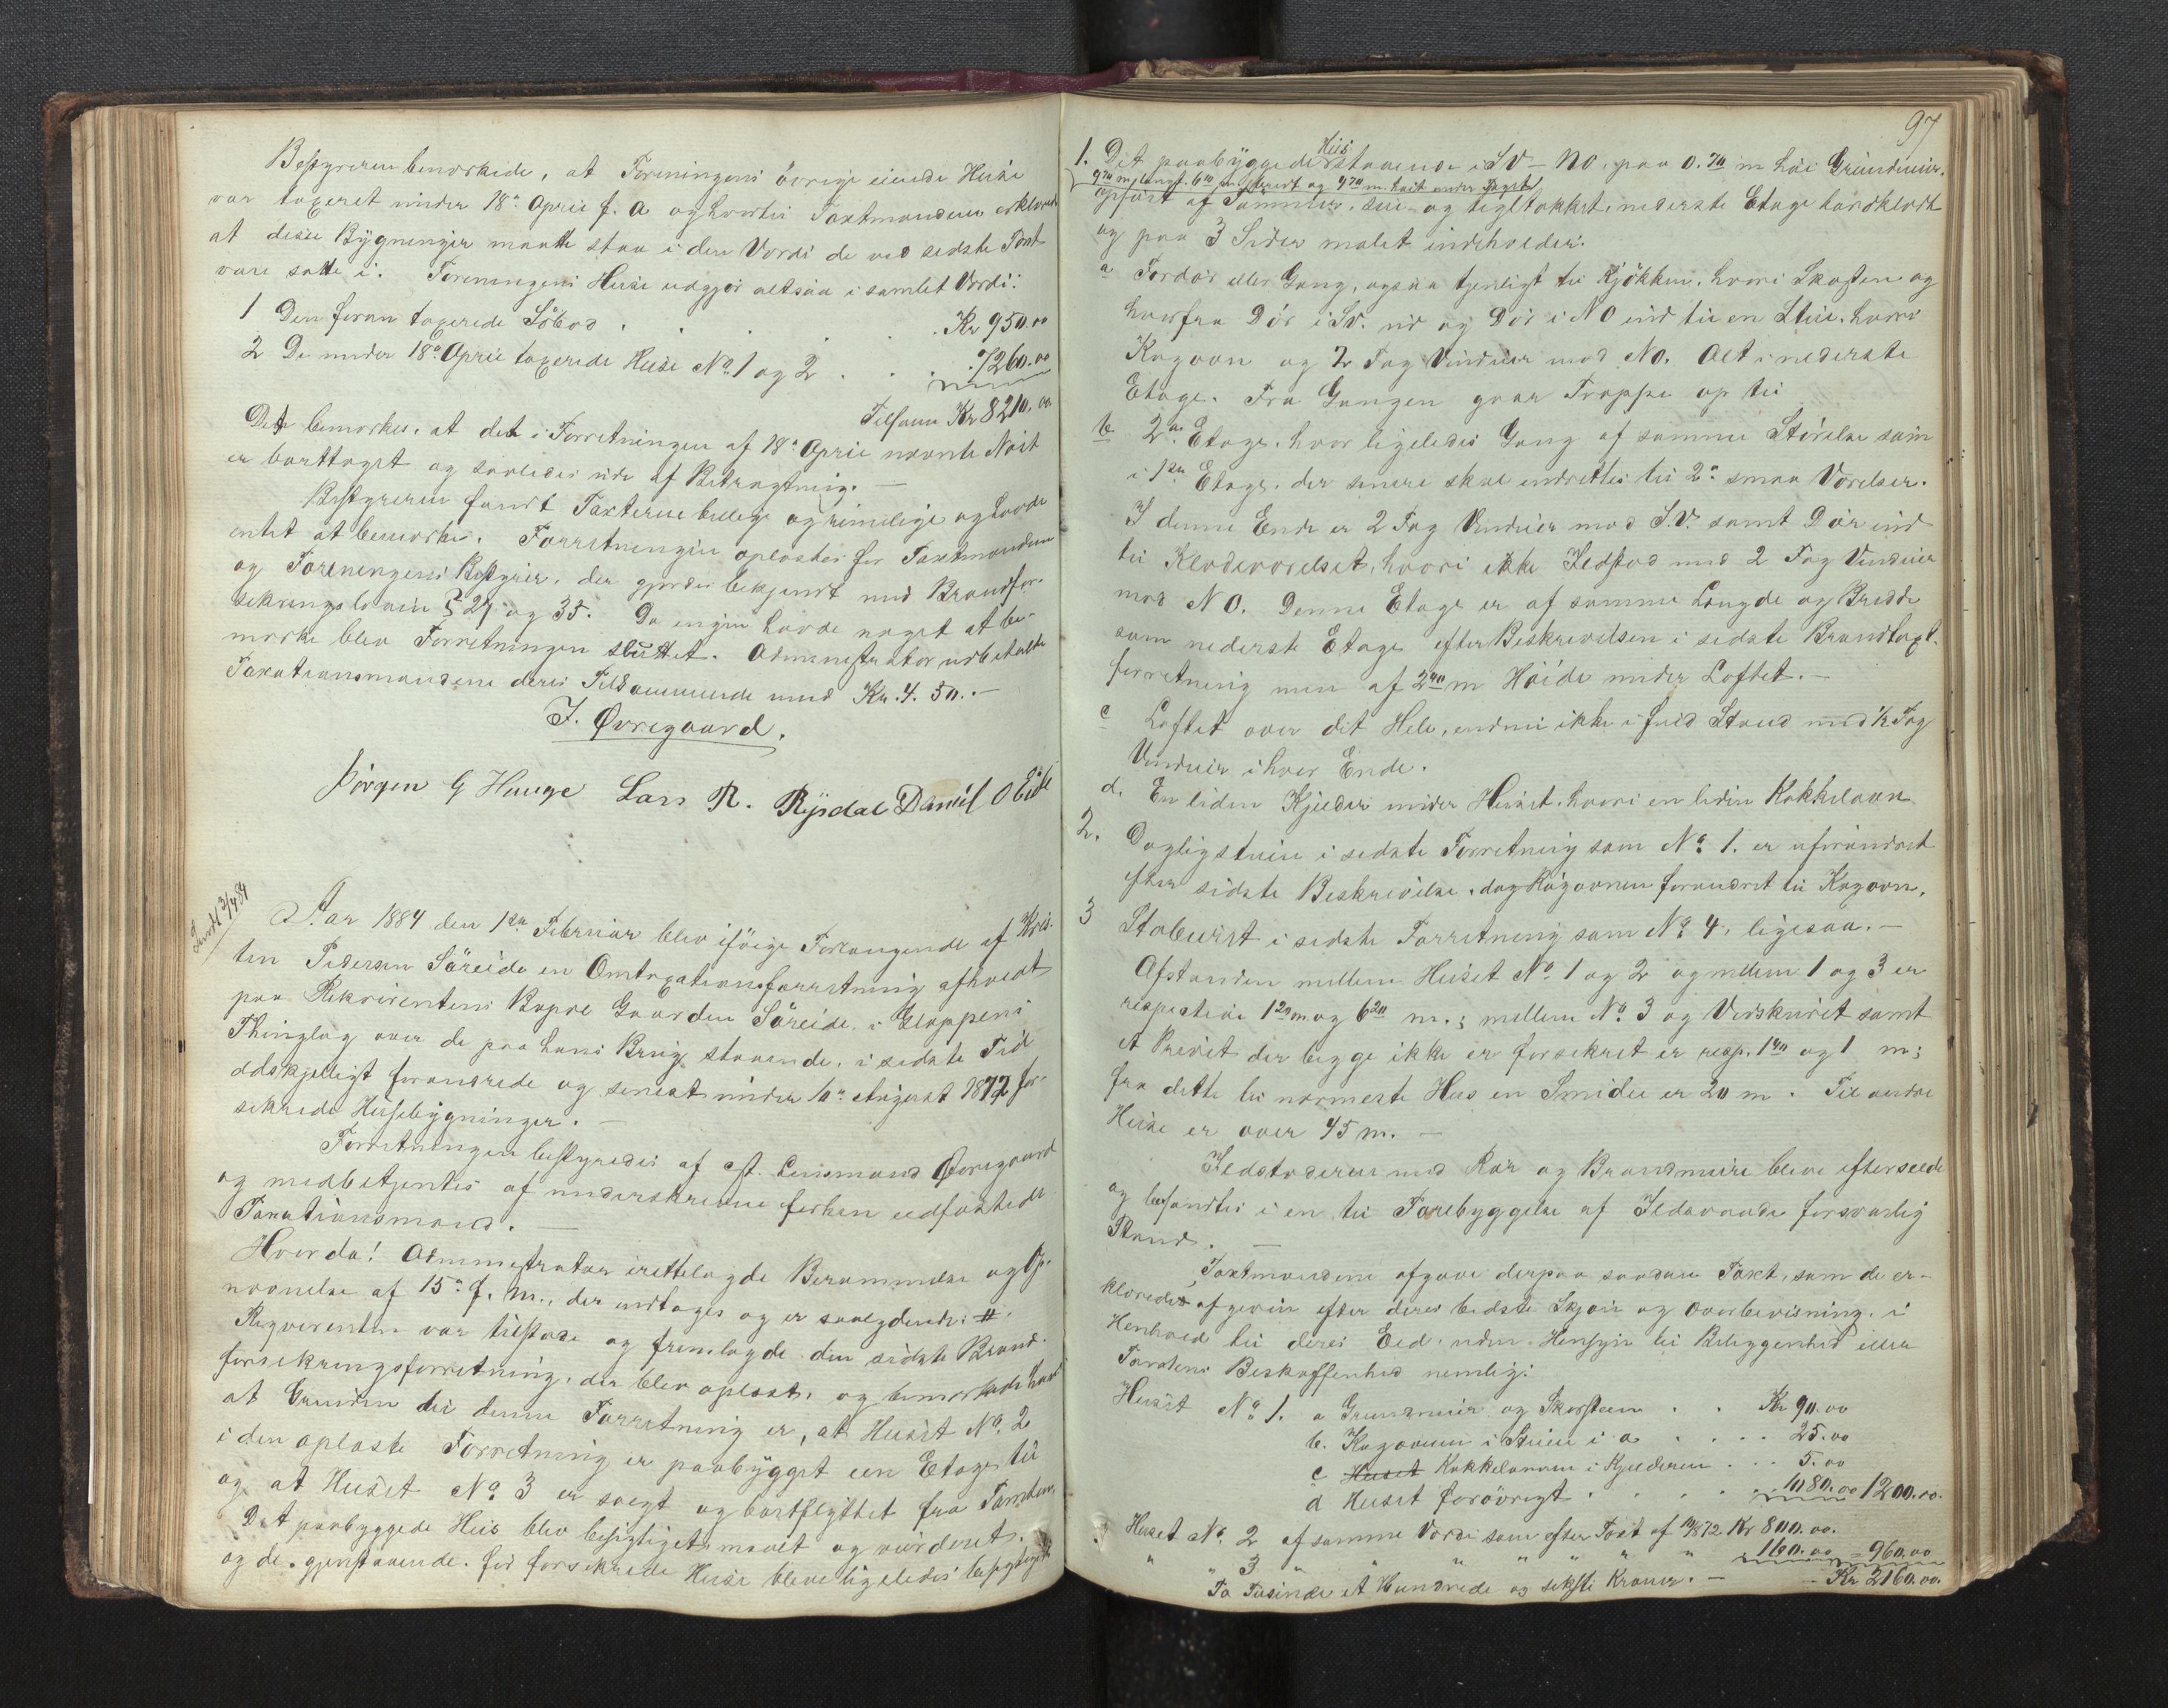 Bestyreren bemærkede, at Foreningens övrige eiende Huse
var taxeret under 18de April f. A. og hvortil Taxtmændene erklærede
at disse Bygninger maatte staa i den Værdi de ved sidste Taxt
vare satte i. Foreningens Huse udgjör altsaa i samlet Værdi:
1 Den foran taxerede Söbod . . . . Kr 950.00
2 De under 18de April taxerede Huse No. 1 og 2 . . . 7260.00
Tilsam Kr 8210.00
Det bemærkes, at det i Forretningen af 18de April nævnte Nöst
er borttaget og saaledes ude af Betragtning. —
Bestyreren fandt Taxterne billige og rimelige og havde
intet at bemærke. Forretningen oplæstes for Taxtmændene
og Foreningens Bestyrer, der gjordes bekjendt med Brandfor-
sikringslovens § 27 og 35. Da ingen havde noget at be-
mærke blev Forretningen sluttet. Administrator udbetalte
Taxationsmændene deres Tilkommende med Kr. 4.50. —
J. Øvregaard.
Jörgen G Hauge Lars R. Rysdal Daniel O Eide
Aar 1884 den 1ste Februar blev ifölge Forlangende af Kris-
ten Pedersen Söreide en Omtaxationsforretning afholdt
paa Rekvirentens Bopæl Gaarden Söreide i Gloppens
Thinglag over de paa hans Brug staaende, i sidste Tid
ddskjelligt forandrede og senest under 10de August 1872 for-
sikrede Husebygninger. —
Forretningen bestyredes af cst. Lensmand Øvregaard
og medbetjentes af underskrevne forhen eedfæstede
Taxationsmænd. —
Hvor da! Administrator irettelagde Berammelse og Op-
nævnelse af 15de f. M., der indtages og er saalydende: #
Reqverenten var tilstæde og fremlagde den sidste Brand-
forsikringsforretning, der blev oplæst, og bemærkede han
at Grunden til denne Forretning er, at Huset No. 2
i den oplæste Forretning er paabygget een Etage til
og at Huset No. 3 er solgt og bortflyttet fra Tomten.
Det paabyggede Hus blev besigtiget, maalt og vurderet,
og de gjenstaaende för forsikrede Huse bleve ligeledes besigtiget
97
1. Det paabyggede Hus staaende i SV – NO. paa 0.70 m höi Grundmur.
9.70 m langt. 6.10 m bredt og 4.70 m. höit under Taget
opfört af Tömmer, sue- og tegltækket, nederste Etage bordklædt
og paa 3 Sider malet indeholder:
a Fordör eller Gang, ogsaa tjenligt til Kjökken, hvori Skorsten og
hvorfra Dör i SV. ud og Dör i NO ind til en Stue, hvori
Kogovn og 2 Fag Vinduer mod NO. Alt i nederste
Etage. Fra Gangen gaar Trappe op til
b 2den Etage, hvor ligeledes Gang af samme Störelse som
i 1ste Etage, der senere skal indrettes til 2de smaa Værelser.
I denne Ende er 2 Fag Vinduer mod S.V. samt Dör ind
til Klædeværelset, hvori ikke Ildsted med 2 Fag Vinduer
mod NO. Denne Etage er af samme Længde og Bredde
som nederste Etage efter Beskrivelsen i sidste Brandtaxt-
forretning men af 2.40 m Höide under Loftet. —
c Loftet over det Hele, endnu ikke i fuld Stand med ½ Fag
Vinduer i hver Ende.
d. En liden Kjælder under Huset, hvori en liden Kakkelovn
2. Dagligstuen i sidste Forretning som No. 1. er uforandret
efter sidste Beskrivelse, dog Rögovnen forandret til Kogovn.
3 Staburet i sidste Forretning som No. 4, ligesaa. —
Afstanden mellem Huset No. 1 og 2 og mellem 1 og 3 er
respective 1.20 m og 6.20 m.; mellem No. 3 og Vedskuret samt
et Privet der begge ikke er forsikret er resp. 1.40 og 1 m;
fra dette til nærmeste Hus en Smidie er 20 m. Til andre
Huse er over 45 m. —
Ildstæderne med Rör og Brandmure bleve efterseede
og befandtes i en til Forebyggelse af Ildsvaade forsvarlig
Stand. —
Taxtmændene afgave derpaa saadan Taxt, som de er-
klærede afgiven efter deres bedste Skjön og Overbevisning, i
Henhold til deres Eed, uden Hensyn til Beliggenhed eller
Tomtens Beskaffenhed nemlig:
Huset No. 1. a Grundmur og Skorsteen . . Kr 90.00
b. Kogovnen i Stuen i a . . . . 25.00
c Huset Kakkelovnen i Kjælderen . . . 5.00
d Huset forövrigt . . . . . 1080.00 1200.00.
Huset No. 2 af samme Værdi som efter Taxt af 10/8 72 Kr 800.00.
" " 3 " " " " " " 160.00 = 960.00
To Tusinde et Hundrede og seksti Kroner. — Kr 2160.00.